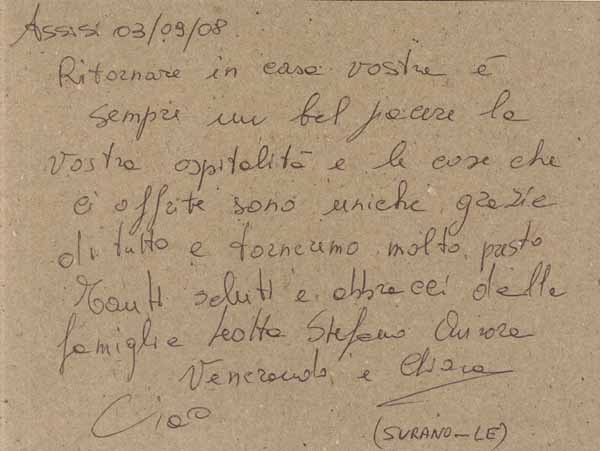 Assisi 03/09/08.
Ritornare in casa vostra é
sempre un bel piacere la
vostra ospitalitá e le cose che
ci offrite sono uniche grazie
di tutto e torneremo molto presto
Tanti saluti e abbracci dalla
famiglia Stefano Aurora
Veneranda e Chiara
Ciao
(SURANO-LE)